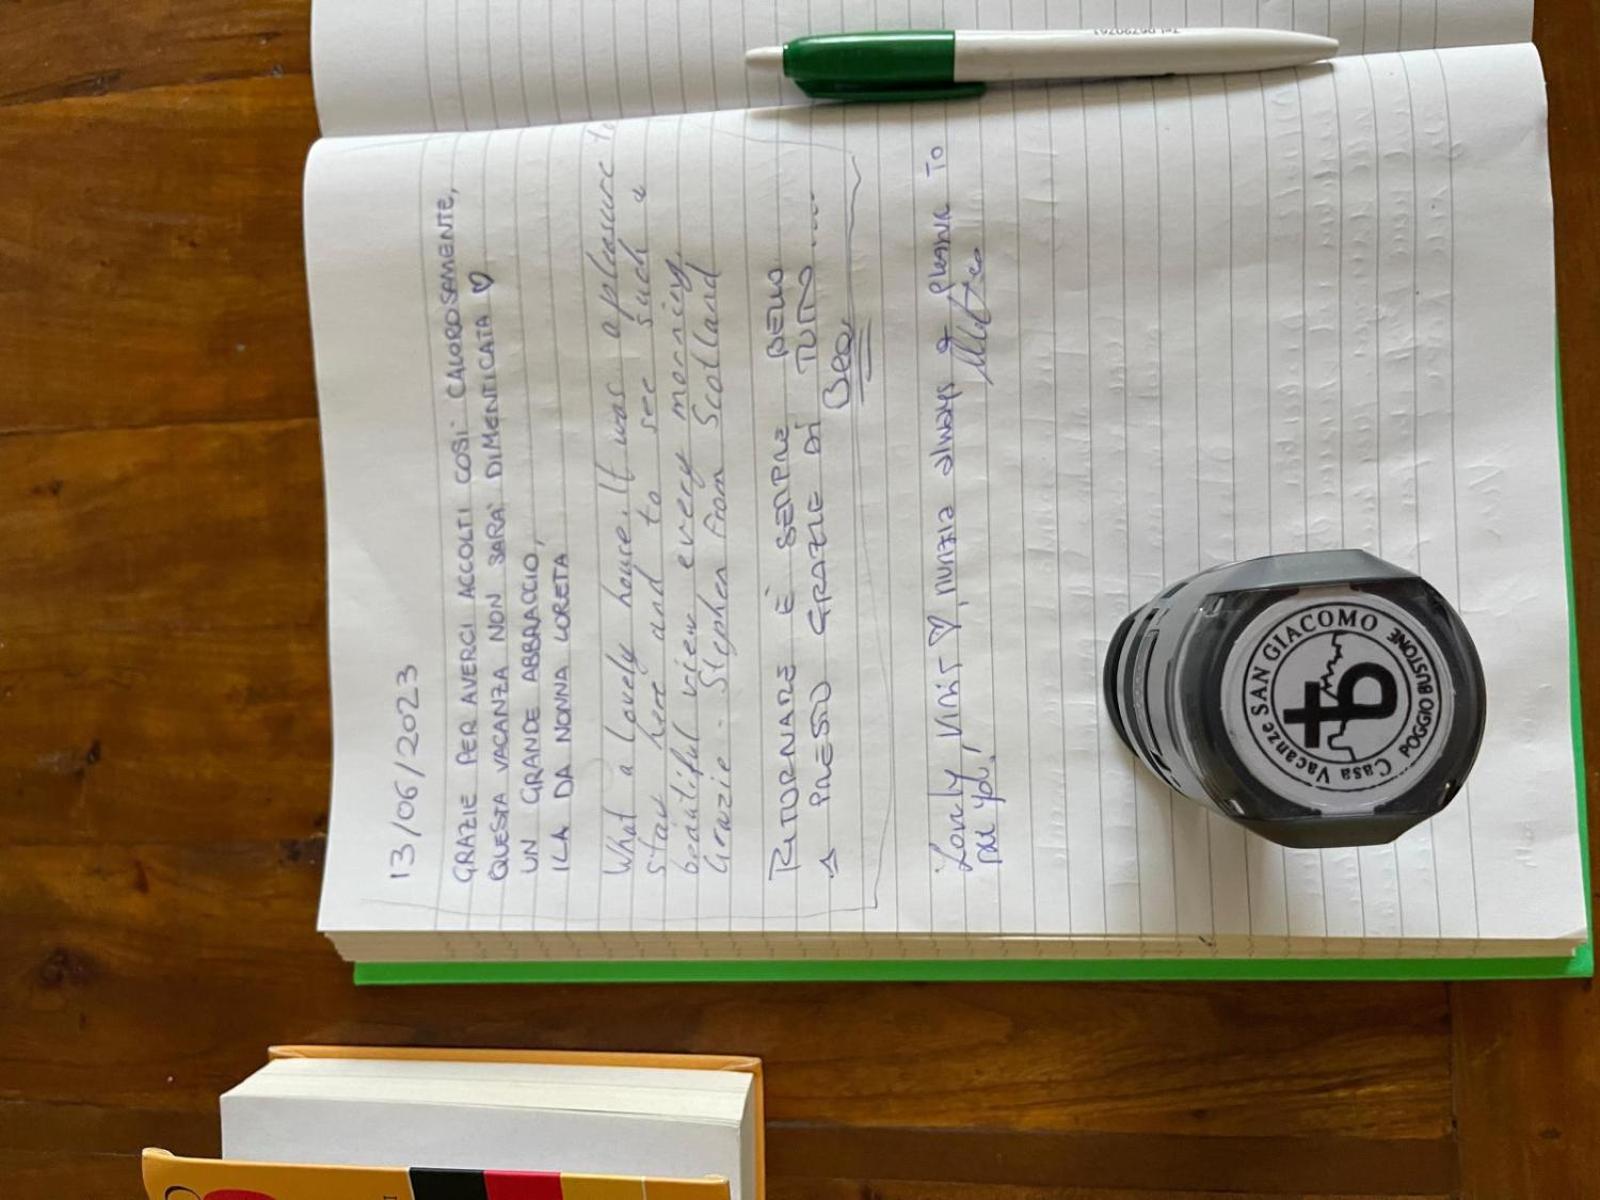 13/06/2023
GRAZIE PER AVERCI ACCOLTI COSÌ CALOROSAMENTE,
QUESTA VACANZA NON SARA' DIMENTICATA ♡
UN GRANDE ABBRACCIO,
ILA DA NONNA LORETA
What a lovely house. It was a pleasure to
stay here and to see such a
beautiful view every morning.
Grazie - Stephen from Scotland
RITORNARE È SEMPRE BELLO
A PRESTO GRAZIE DI TUTTO....
Lovely, ♡, nunzia always a to
you!
Casa Vacanze SAN GIACOMO
POGGIO BUSTONE
Tel.06790761